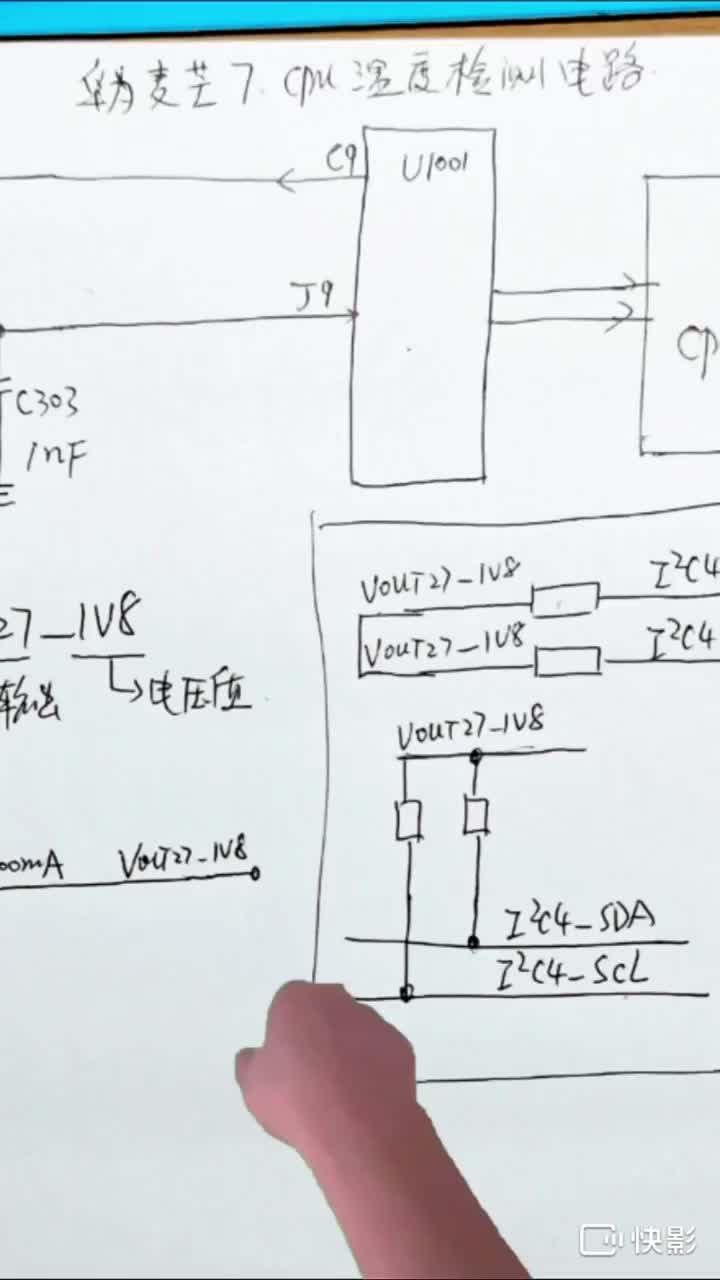 华为麦芒7.CPU温度检测电路
C9
U1001
J9
CP
C303
1nF
VOUT27_1V8
I²C4
VOUT27_1V8
I²C4
27_1V8
输出
电压值
VOUT27_1V8
00mA
VOUT27_1V8
I²C4_SDA
I²C4_SCL
快影